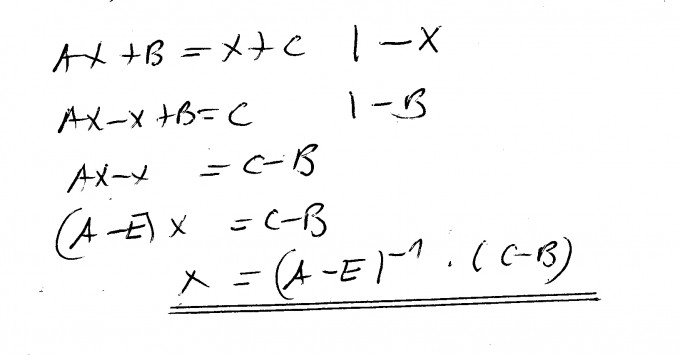 AX + B = X + C | - X
AX - X + B = C | - B
AX - X = C - B
(A - E) X = C - B
X = (A - E)⁻¹ · (C - B)